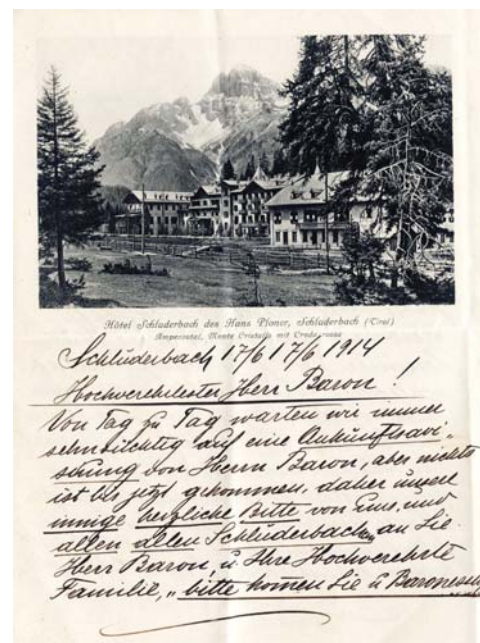 Hôtel Schluderbach des Hans Ploner, Schluderbach (Tirol)
Ampezzotal, Monte Cristallo mit Croda rossa
Schluderbach 17/6 17/6 1914
Hochverehrtester Herr Baron!
Von Tag zu Tag warten wir immer
sehnsüchtig auf eine Ankunftsavi-
sirung von Herrn Baron, aber nichts
ist bis jetzt gekommen, daher unsere
innige herzliche Bitte von uns, und
allen allen Schluderbachern an Sie
Herr Baron, u. Ihre Hochverehrte
Familie, „bitte komen Sie u Baronesse